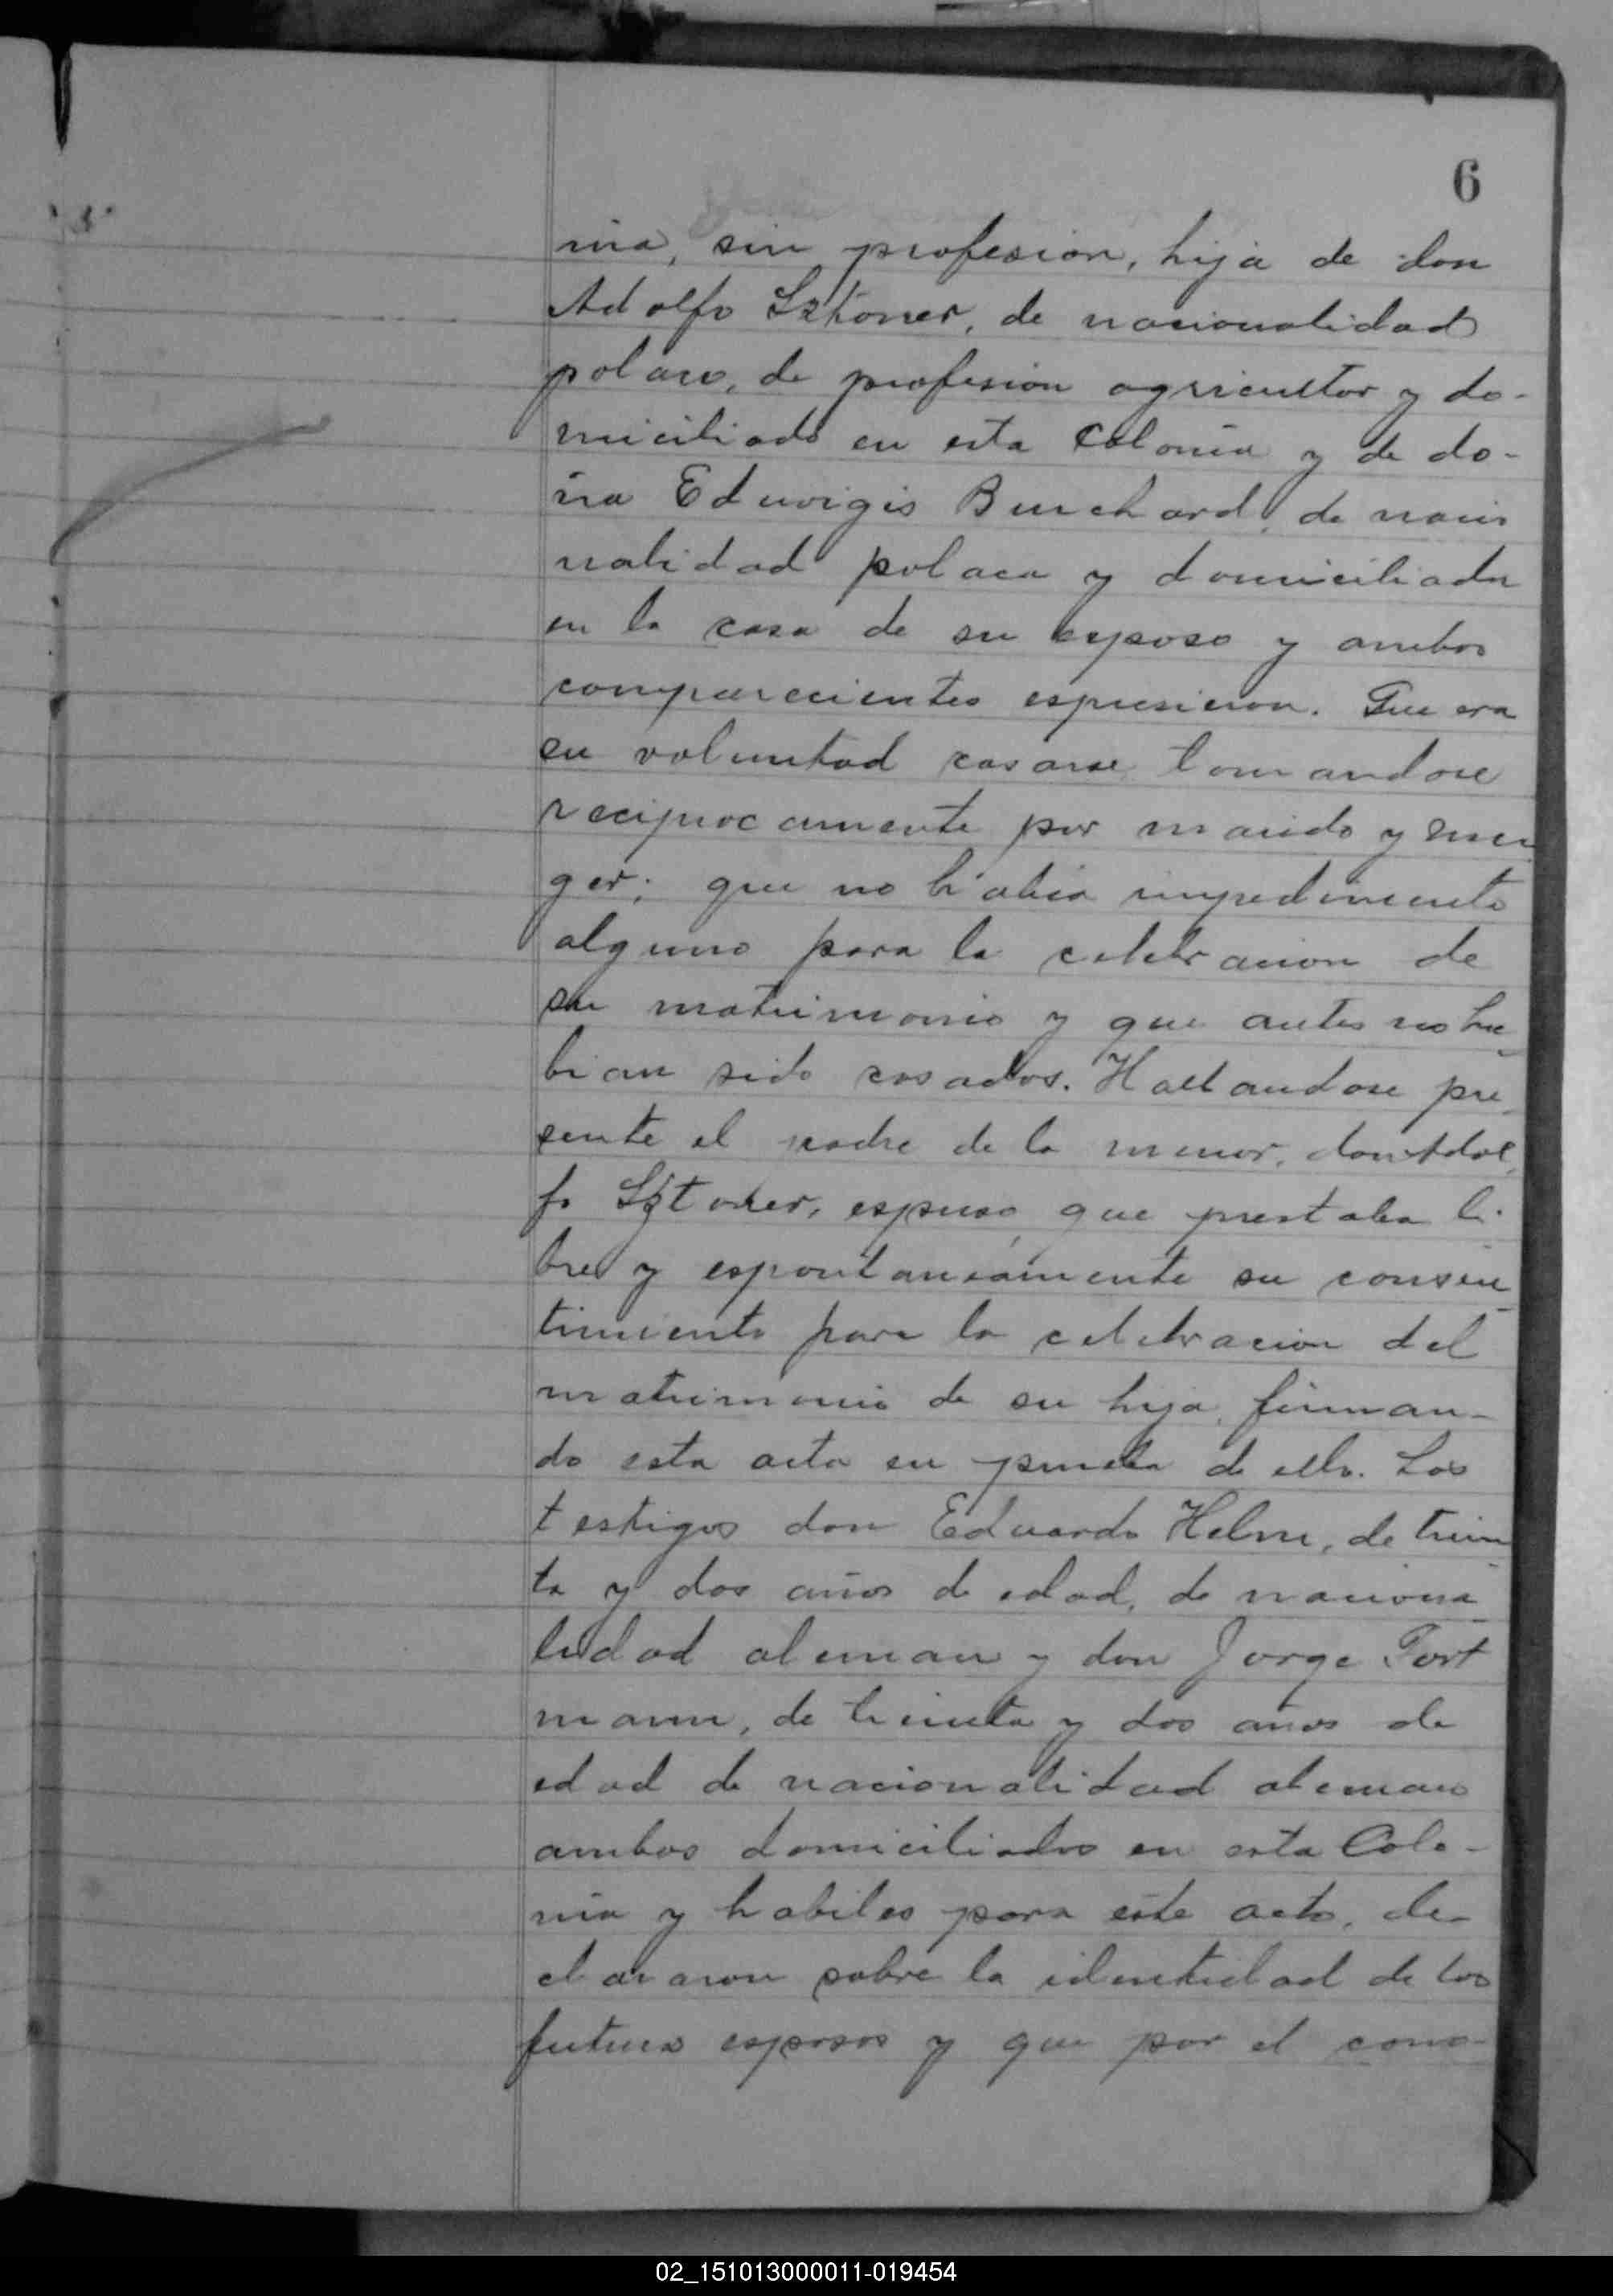 6
nia, sin profesion, hija de don
Adolfo Sztoner, de nacionalidad
polaco, de profesion agricultor y do-
miciliado en esta Colonia y de do-
ña Eduvigis Burchard, de nacio
nalidad polaca y domiciliada
en la casa de su esposo y ambos
comparecientes espresieron. Que era
su voluntad casarse tomandose
reciprocamente por marido y mu
ger; que no habia impedimento
alguno para la celebracion de
su matrimonio y que antes no ha
bian sido casados. Hallandose pre
sente el padre de la menor, don Adol
fo Sztoner, espuso, que prestaba li-
bre y espontaneamente su consen
timiento para la celebracion del
matrimonio de su hija, firman-
do esta acta en prueba de ello. Los
testigos don Eduardo Helm, de trein
ta y dos años de edad, de naciona
lidad aleman y don Jorge Port
mann, de treinta y dos años de
edad de nacionalidad aleman
ambos domiciliados en esta Colo-
nia y habiles para este acto, de-
clararon sobre la identidad de los
futuros esposos y que por el cono-
02_151013000011-019454